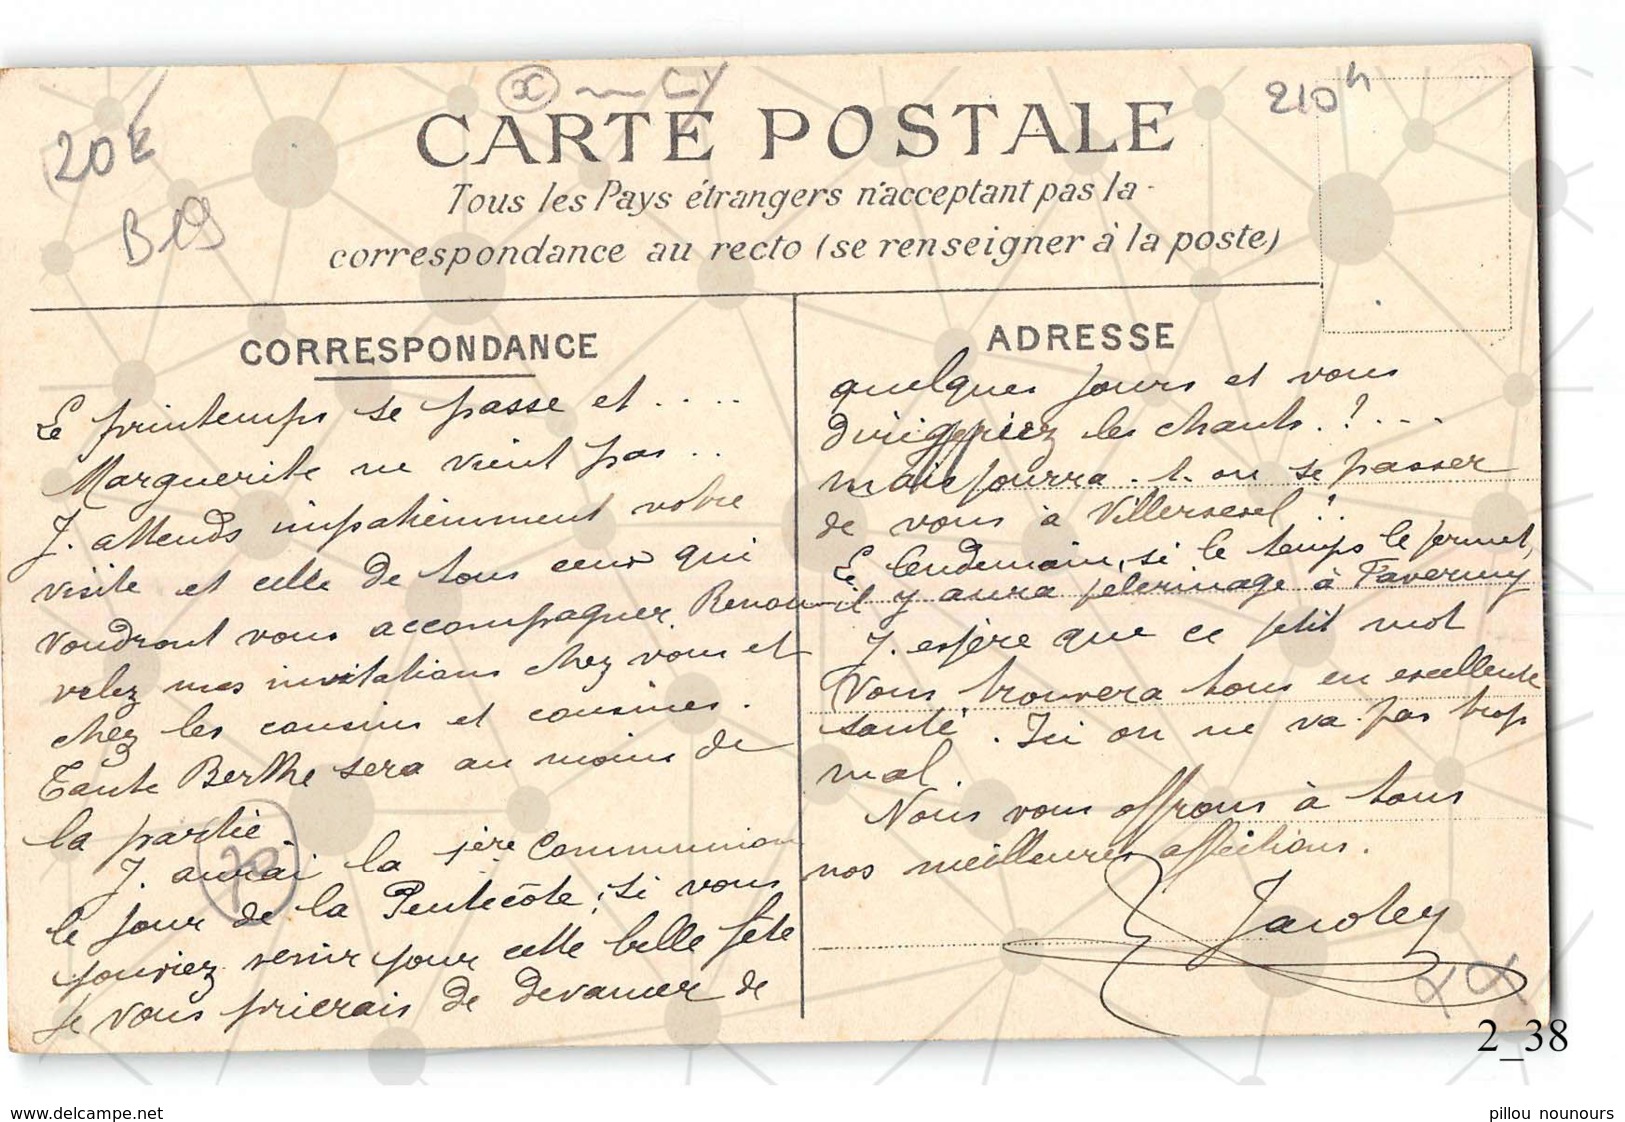 210h
20E
B19
CARTE POSTALE
Tous les Pays étrangers n'acceptant pas la
correspondance au recto (se renseigner à la poste)
CORRESPONDANCE
Le printemps se passe et . . . .
Marguerite ne vient pas . .
J. attends impatiemment votre
visite et celle de tous ceux qui
voudront vous accompagner. Renou-
velez mes invitations chez vous et
chez les cousins et cousines.
Tante Berthe sera au moins de
la partie.
J. aurai la 1ère Communion
le jour de la Pentecôte ; si vous
pouviez venir pour cette belle fête
je vous prierais de devancer de
ADRESSE
quelques jours et vous
dirigeriez les chants. ! . . .
mais pourra . t. on se passer
de vous à Villersexel ! .
Le lendemain, si le temps le permet,
il y aura pelerinage à Faverney
J. espère que ce petit mot
vous trouvera tous en excellente
santé . Ici on ne va pas trop
mal.
Nous vous offrons à tous
nos meilleures affections.
Jacoley
2_38
www.delcampe.net
pillou nounours